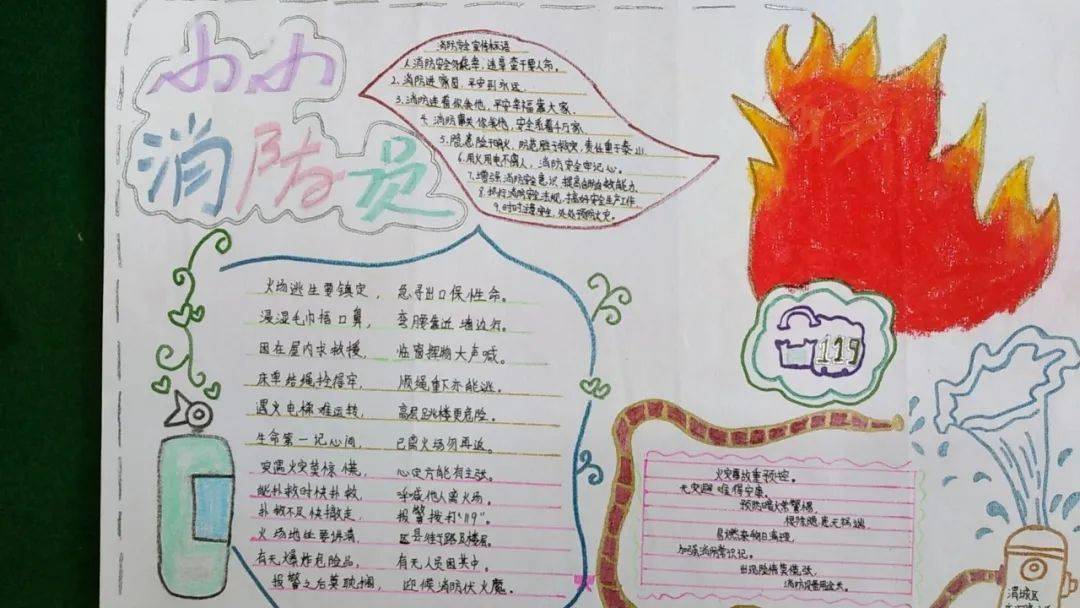 小小
消防员
消防安全宣传标语
1.消防安全勿侥幸,违章蛮干要人命。
2.消防进家园,平安到永远。
3.消防连着你我他,平安幸福靠大家。
4.消防事关你我他,安全系着千万家。
5.隐患险于明火,防范胜于救灾,责任重于泰山。
6.用火用电不离人,消防安全牢记心。
7.增强消防安全意识 提高自防自救能力
8.执行消防安全法规,搞好安全生产工作
9.时时注意安全,处处预防火灾。
火场逃生要镇定, 急寻出口保性命。
浸湿毛巾捂口鼻, 弯腰靠近墙边行。
困在屋内求救援, 临窗挥物大声喊。
床单结绳拴得牢, 顺绳垂下亦能逃。
遇火电梯难运转, 高层跳楼更危险。
生命第一记心间, 已离火场勿再返。
突遇火灾莫惊慌, 心定方能有主张。
能扑救时快扑救, 呼喊他人离火场。
扑救不足快撤走, 报警拨打“119”。
火场地址要讲清, 区县街路及楼层。
有无爆炸危险品, 有无人员困其中。
报警之后莫耽搁, 迎候消防伏火魔。
119
火灾事故重预控。
无灾避难得安康。
预热嗜火常警惕,
加强消防常识记。
出现险情莫慌张,
渭城区